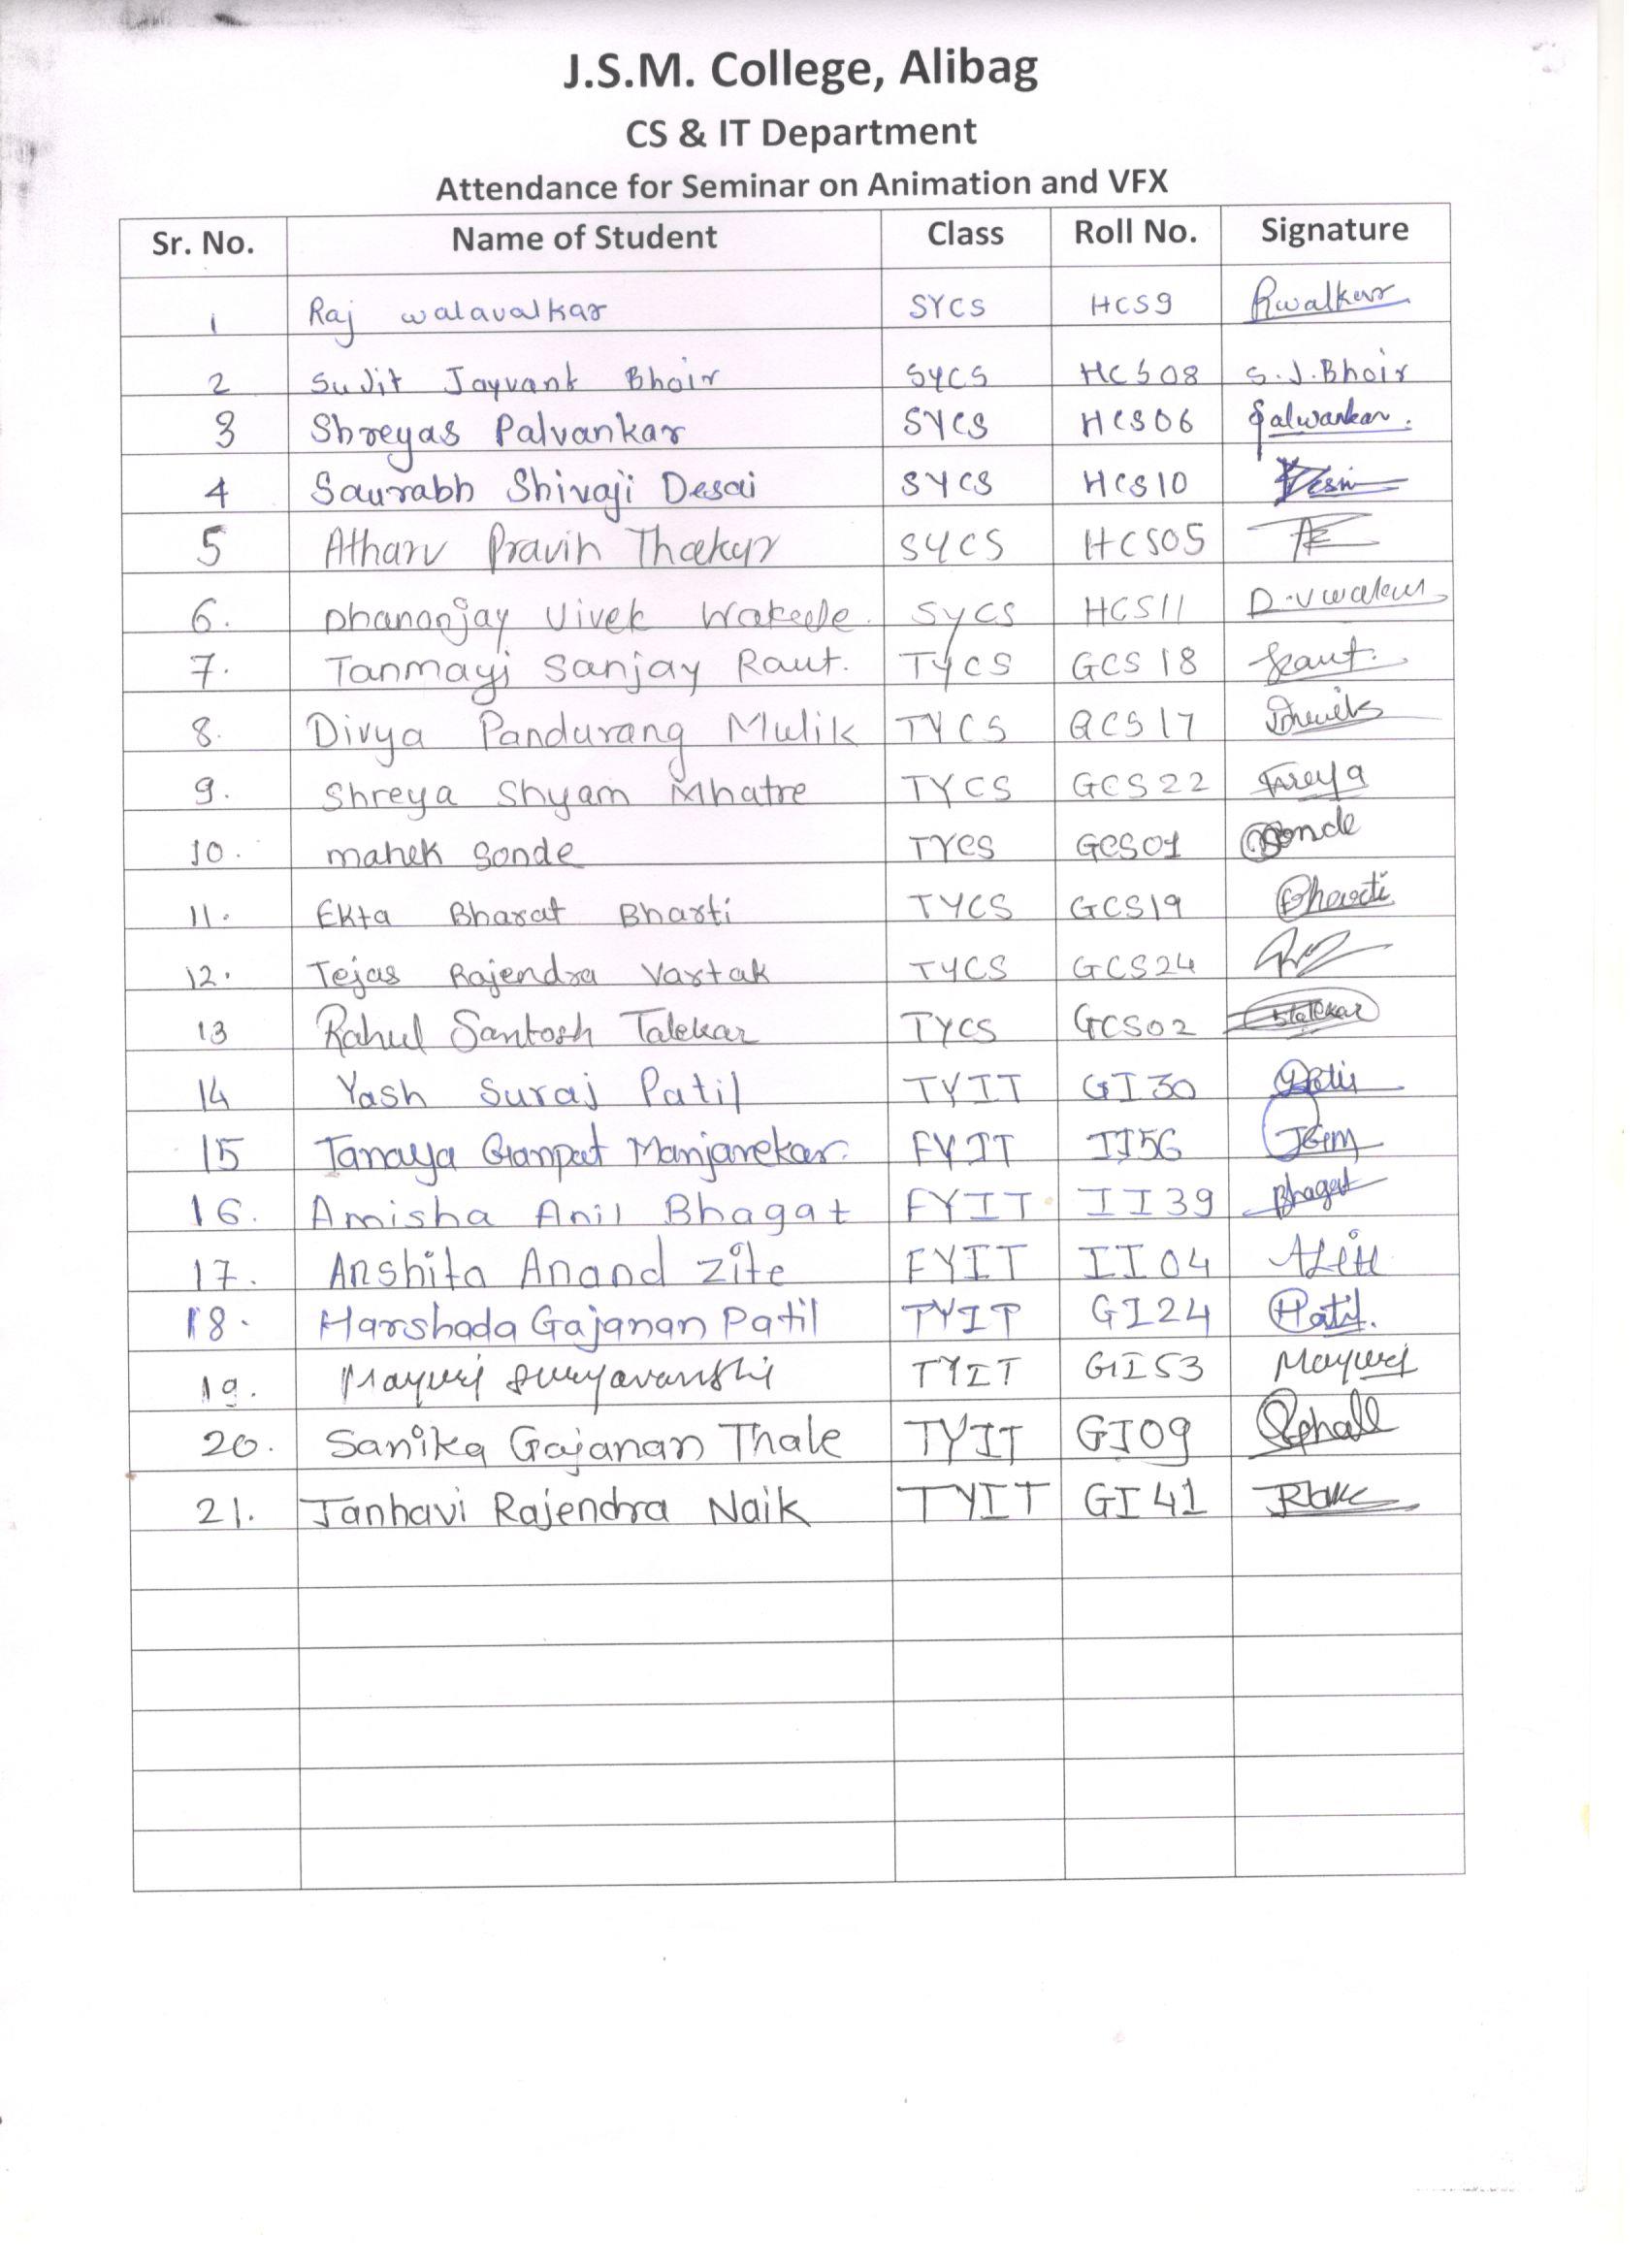 J.S.M. College, Alibag
CS & IT Department
Attendance for Seminar on Animation and VFX
Sr. No. Name of Student Class Roll No. Signature
1 Raj walavalkar SYCS HCS9 Rwalkar
2 Sujit Jayvant Bhoir SYCS HCS08 S.J.Bhoir
3 Shreyas Palvankar SYCS HCS06 Palwankar.
4 Saurabh Shivaji Desai SYCS HCS10
5 Atharv Pravin Thakur SYCS HCS05
6. Dhananjay Vivek Wakede. SYCS HCS11
7. Tanmayi Sanjay Raut. TYCS GCS 18 Raut.
8. Divya Pandurang Mulik TYCS GCS 17
9. Shreya Shyam Mhatre TYCS GCS22 Shreya
10. mahek sonde TYCS GCS01 Sonde
11. Ekta Bharat Bharti TYCS GCS19 Bharti
12. Tejas Rajendra Vartak TYCS GCS24
13 Rahul Santosh Talekar TYCS GCS02
14 Yash Suraj Patil TYIT GI30
15 Tanaya Ganpat Manjarekar. FYIT II56 TGM
16. Amisha Anil Bhagat FYIT II39 Bhagat
17. Anshita Anand Zite FYIT II04
18. Harshada Gajanan Patil TYIT GI24 Patil.
19. Mayuri Suryavanshi TYIT GI53 Mayuri
20. Sanika Gajanan Thale TYIT GI09
21. Janhavi Rajendra Naik TYIT GI41